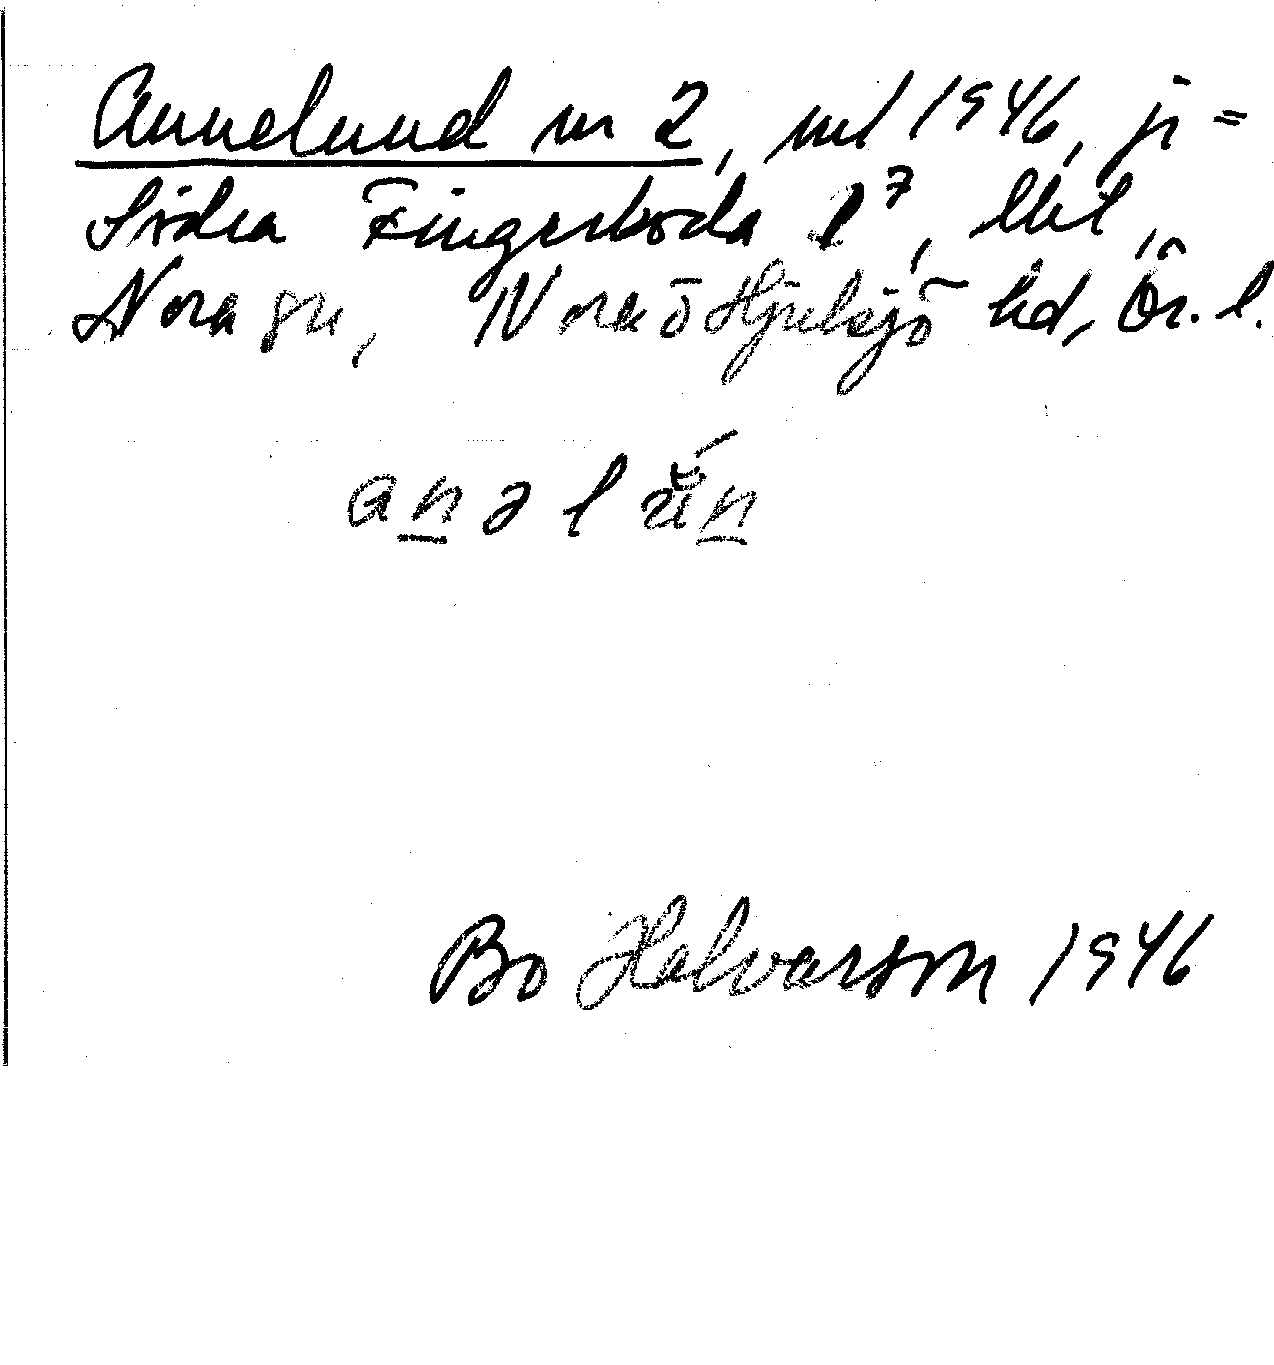 Annelund nr 2, url 1946, jr =
Södra Fingerboda 1⁷, lht,
Nora sn, Nora ō Hjulsjö hd, Ör. l.
anəlŭ́n
Bo Halvarson 1946